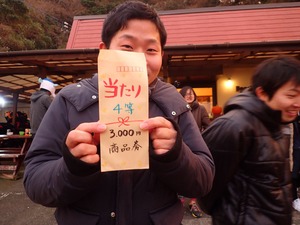 当たり
4等
3,000円
商品券